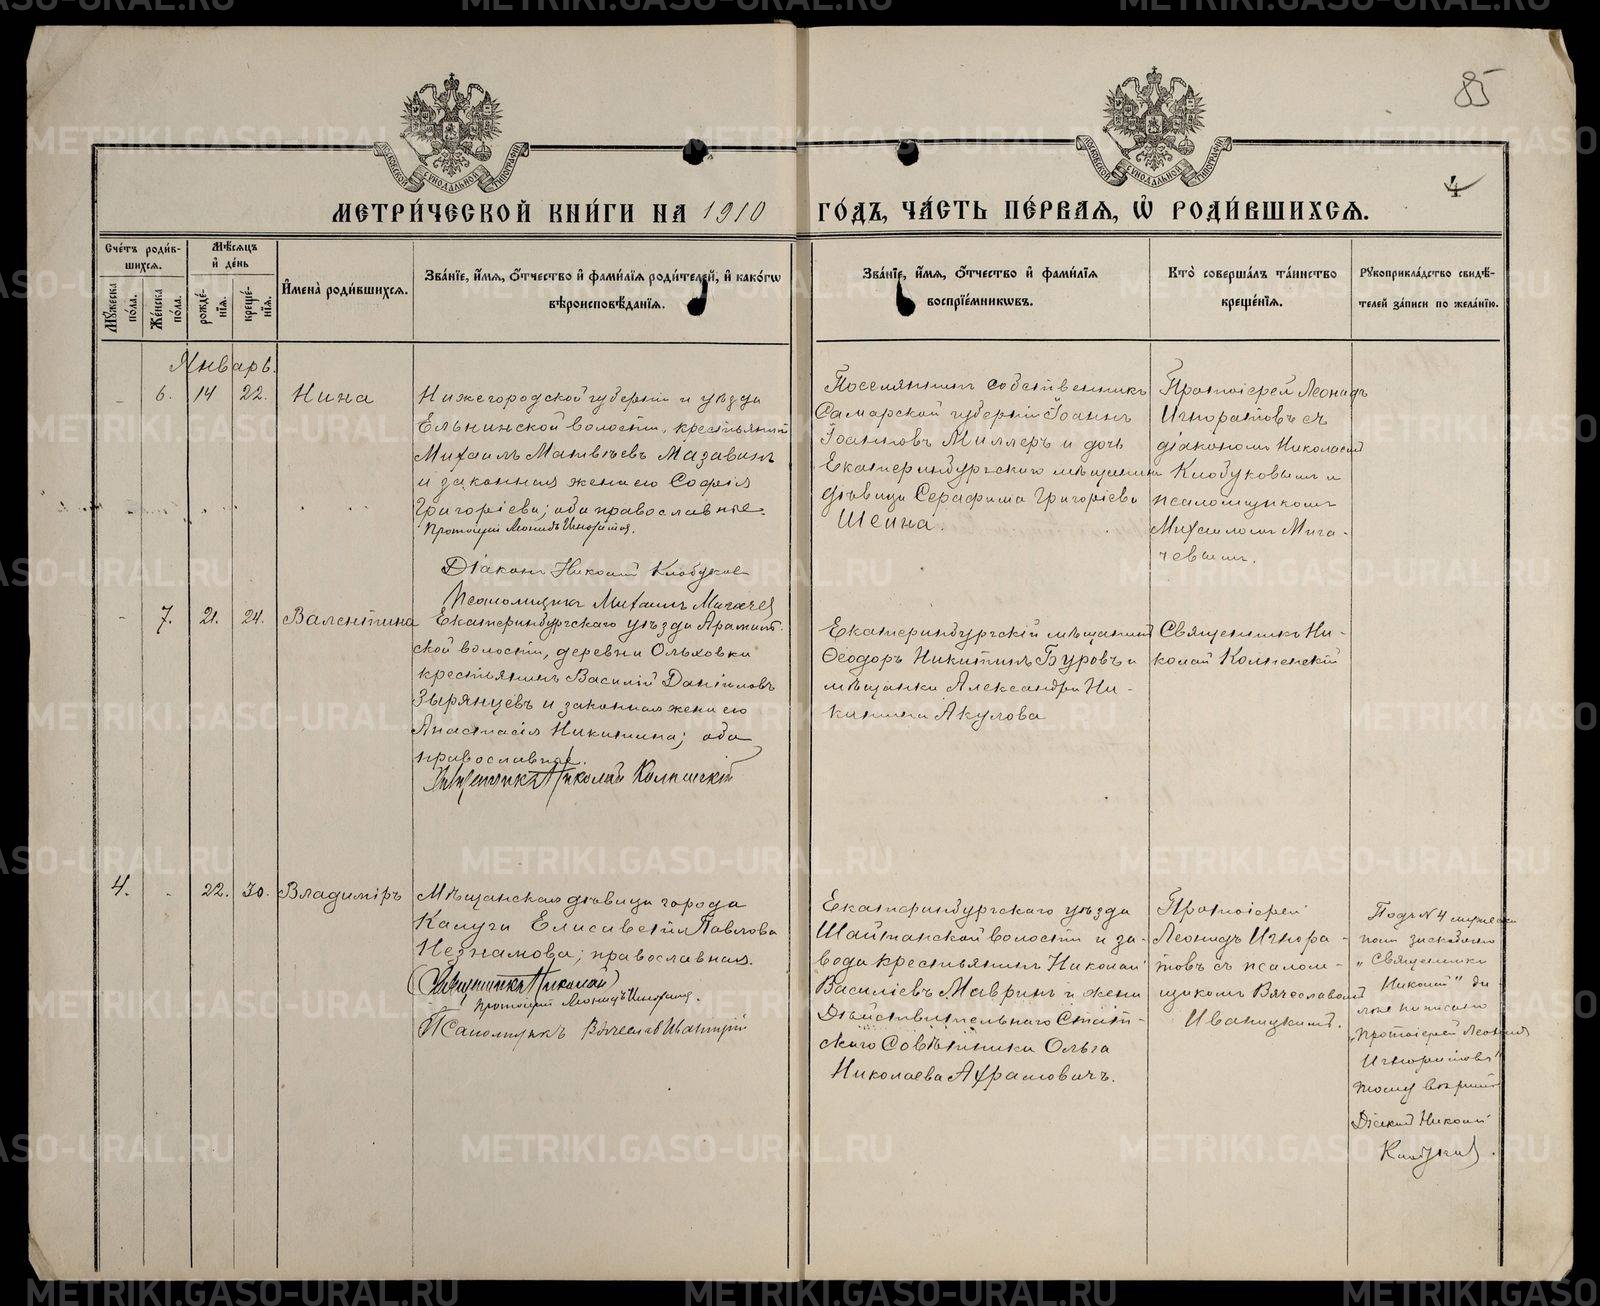 85
4
МОСКОВСКОЙ СѴНОДАЛЬНОЙ ТИПОГРАФІИ
МОСКОВСКОЙ СѴНОДАЛЬНОЙ ТИПОГРАФІИ
МЕТРИ́ЧЕСКОЙ КНИ́ГИ НА 1910 ГО́ДЪ, ЧА́СТЬ ПЕ́РВАЯ, Ѡ РОДИ́ВШИХСЯ.
Сче́тъ роди́в-
шихся.
Мѣ́сяцъ
и де́нь
Му́жеска по́ла.
Же́нска по́ла.
рожде́-
нія.
креще́-
нія.
Имена̀ роди́вшихся.
Зва́ніе, и́мя, о́тчество и фами́лія роди́телей, и како́гѡ
вѣроисповѣ́данія.
Зва́ніе, и́мя, о́тчество и фами́лія
воспріе́мниковъ.
Кто̀ соверша́лъ та́инство
креще́нія.
Рукоприкла́дство свидѣ́-
телей за́писи по жела́нію.
Январь.
- 6. 14 22. Нина
Нижегородской губерніи и уѣзда
Ельнинской волости, крестьянин
Михаилъ Матвѣевъ Мазавинъ
и законная жена его Софія
Григоріева; оба православные.
Протоіерей Леонидъ Игноратовъ.
Діаконъ Николай Клобуков
Псаломщикъ Михаилъ Мигачев
Поселянинъ собственникъ
Самарской губерніи Іоаннъ
Іоанновъ Миллеръ и дочь
Екатеринбургскаго мѣщанина
дѣвица Серафима Григоріева
Шеина.
Протоіерей Леонидъ
Игноратовъ съ
діакономъ Николаемъ
Клобуковымъ и
псаломщикомъ
Михаиломъ Мига-
чевымъ.
- 7. 21. 24. Валентина
Екатеринбургскаго уѣзда Арамил-
ской волости, деревни Ольховки
крестьянинъ Василій Даніиловъ
Зырянцевъ и законная жена его
Анастасія Никитина; оба
православные.
Священникъ Николай
Екатеринбургскій мѣщанинъ
Ѳеодоръ Никитинъ Буровъ и
мѣщанка Александра Ни-
китина Акулова
Священникъ Ни-
колай
4. - 22. 30. Владиміръ
Мѣщанская дѣвица города
Калуги Елисавета Павлова
Незнамова; православная.
(Священникъ Николай)
Протоіерей Леонидъ Игноратовъ.
Псаломщикъ Вячеслав Иваницкій
Екатеринбургскаго уѣзда
Шайтанской волости и за-
вода крестьянинъ Николай
Василіевъ Мавринъ и жена
Дѣйствительнаго Стат-
скаго Совѣтника Ольга
Николаева Ахрамовичъ.
Протоіерей
Леонидъ Игнора-
товъ съ псалом-
щикомъ Вячеславомъ
Иваницкимъ.
Подъ №4 мужеска
пола зискоблено
„Священникъ
Николай"
написано
„Протоіерей Леонидъ
Игноратовъ"
тому вѣрить
Діакон Николай
Клобуков.